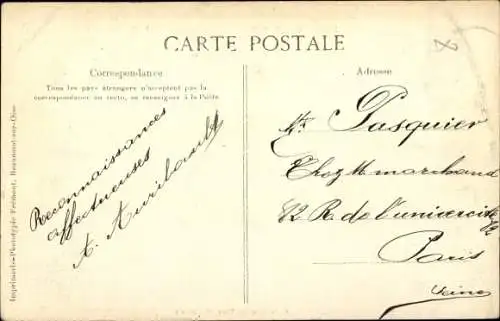 CARTE POSTALE
Correspondance
Tous les pays étrangers n'acceptent pas la
correspondance au recto, se renseigner à la Poste
Reconnaissances
affectueuses
A.
Adresse
Mr Pasquier
Chez M marchand
12 R. de l'univercité
Paris
Seine
Imprimerie-Phototypie Frémont, Beaumont-sur-Oise